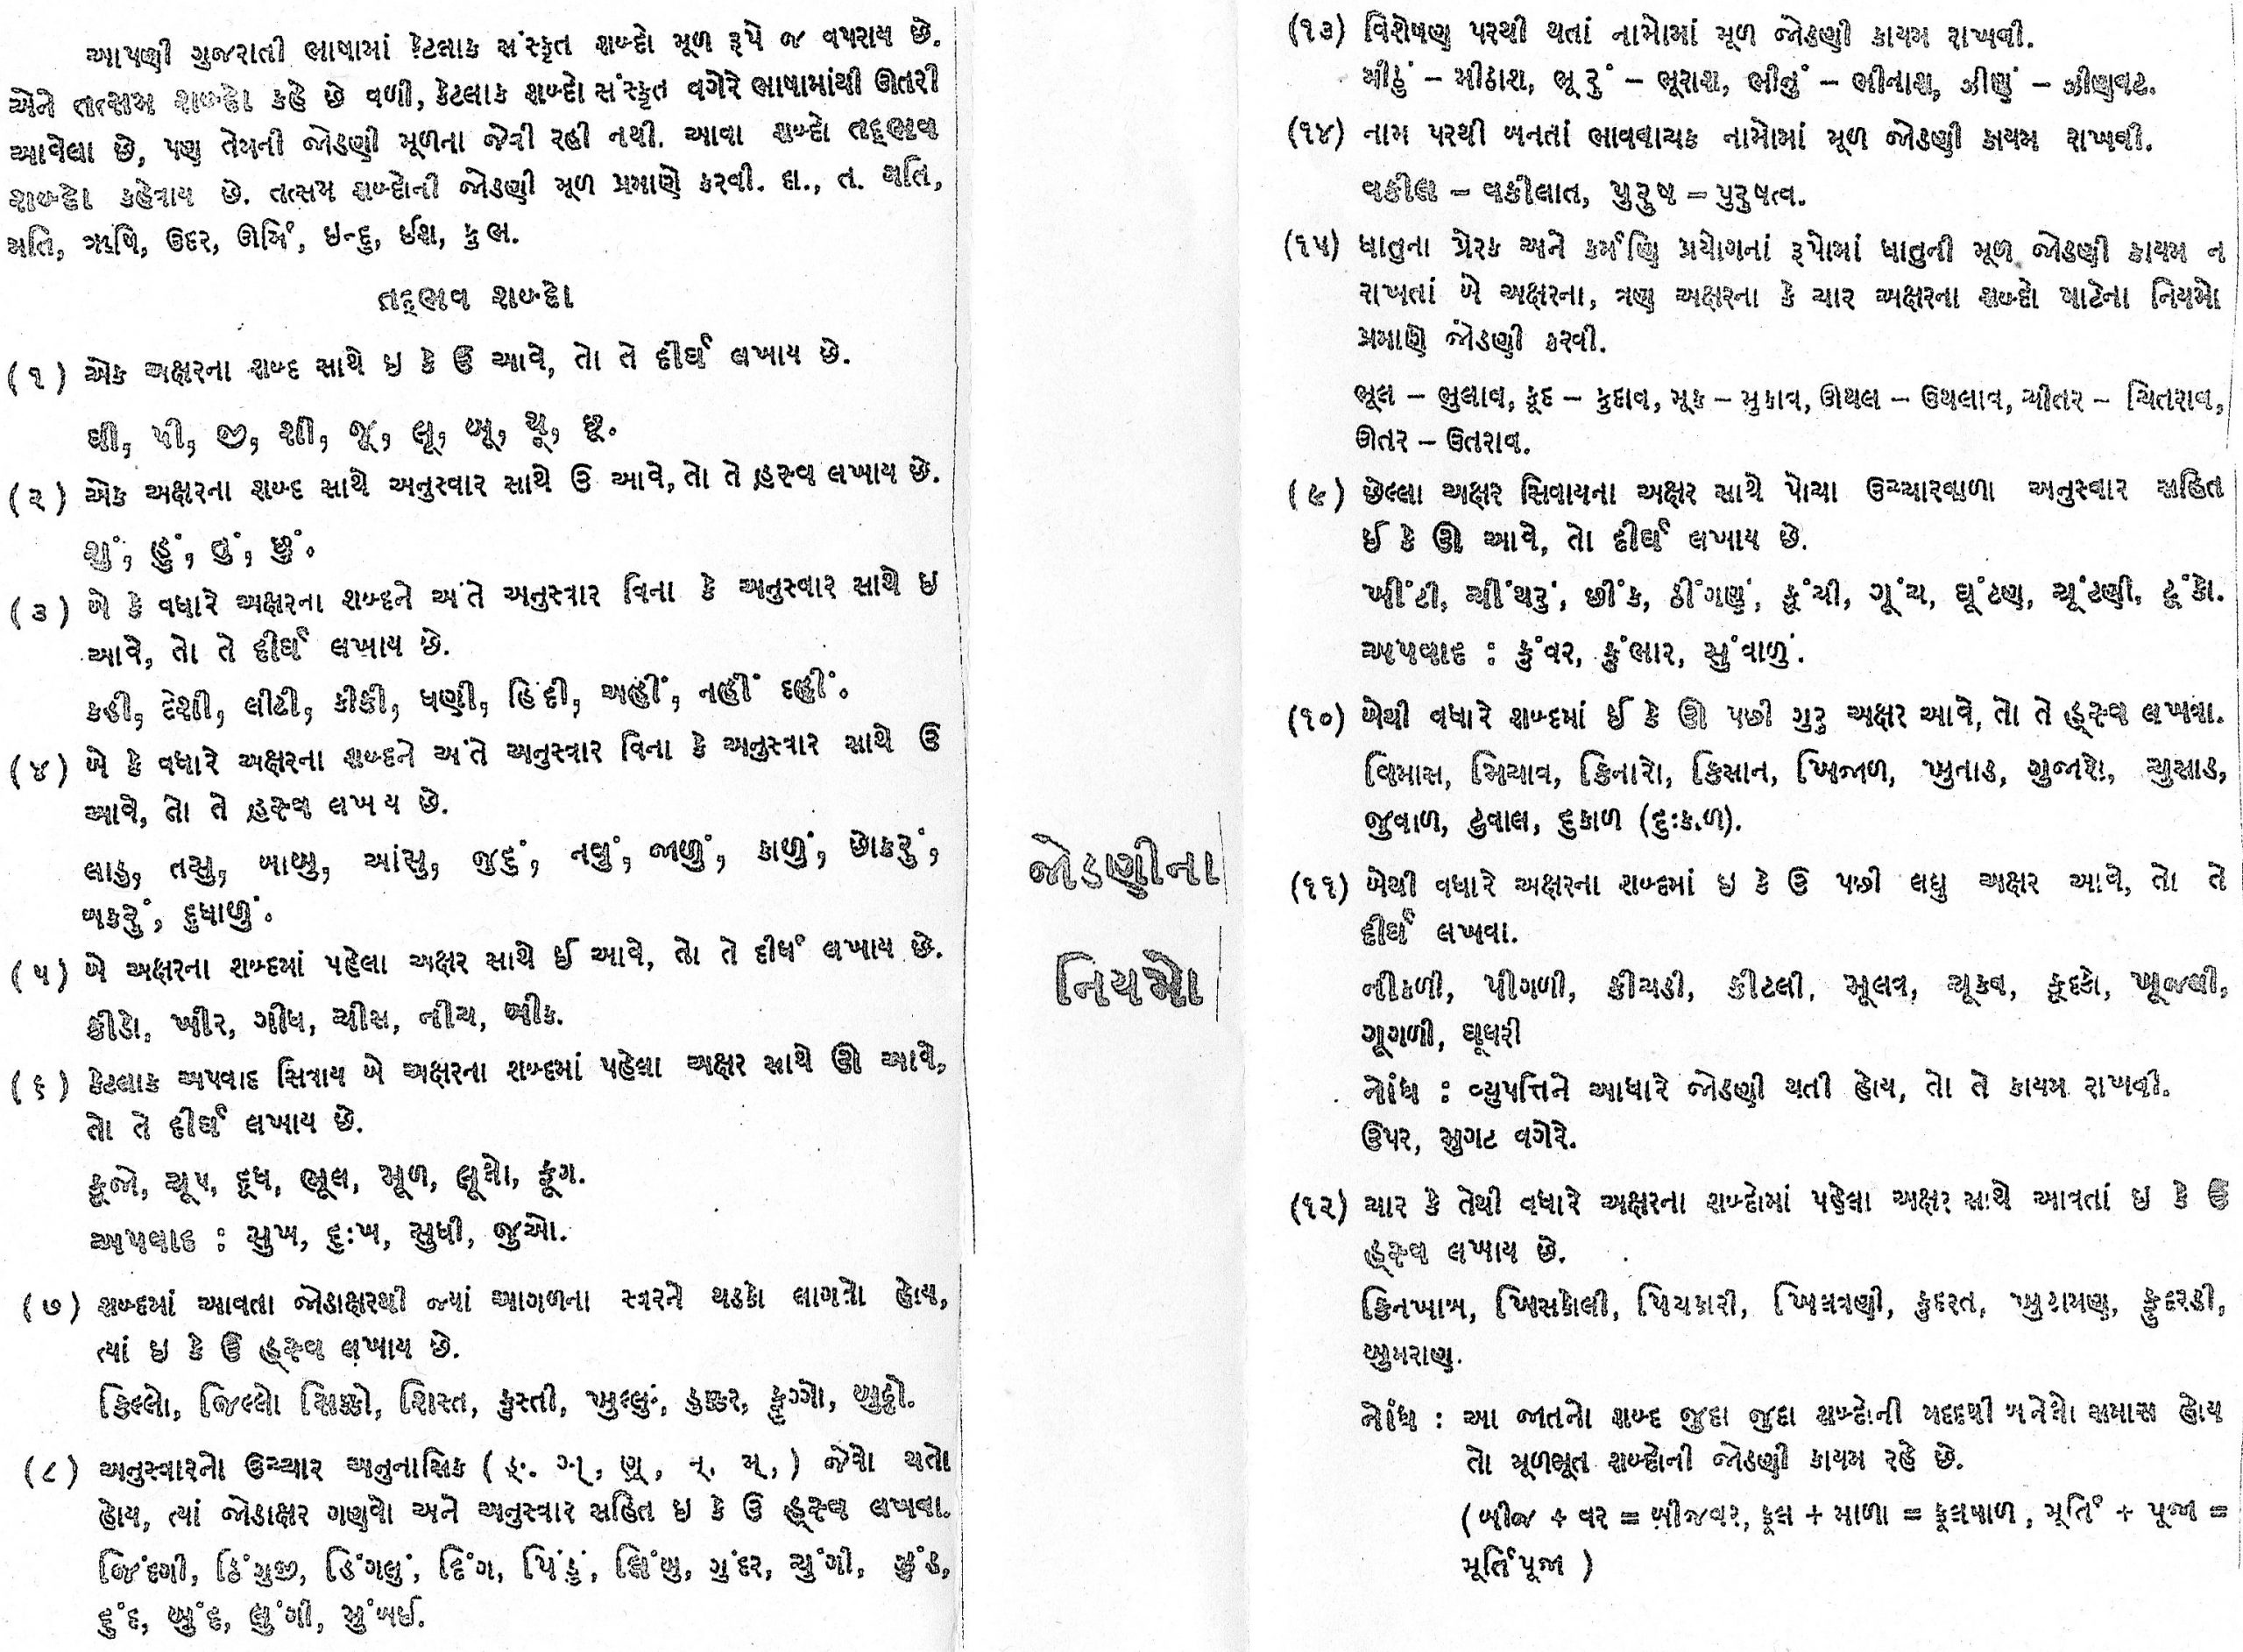 આપણી ગુજરાતી ભાષામાં કેટલાક સંસ્કૃત શબ્દો મૂળ રૂપે જ વપરાય છે.
એને તત્સમ શબ્દો કહે છે વળી, કેટલાક શબ્દો સંસ્કૃત વગેરે ભાષામાંથી ઊતરી
આવેલા છે, પણ તેમની જોડણી મૂળના જેવી રહી નથી. આવા શબ્દો તદ્ભવ
શબ્દો કહેવાય છે. તત્સમ શબ્દોની જોડણી મૂળ પ્રમાણે કરવી. દા., ત. મતિ,
ઋષિ, ઉદર, ઊર્મિ, ઇન્દુ, ઈશ, કુભ.
તદ્ભવ શબ્દો
(૧) એક અક્ષરના શબ્દ સાથે ઇ કે ઉ આવે, તો તે દીર્ઘ લખાય છે.
ઘી, પી, જી, શી, જૂ, લૂ, બૂ, ચૂ, છૂ.
(૨) એક અક્ષરના શબ્દ સાથે અનુસ્વાર સાથે ઉ આવે, તો તે હ્રસ્વ લખાય છે.
શું, હું, તું, છું.
(૩) બે કે વધારે અક્ષરના શબ્દને અંતે અનુસ્વાર વિના કે અનુસ્વાર સાથે ઇ
આવે, તો તે દીર્ઘ લખાય છે.
કડી, દેશી, લીટી, કીકી, ધણી, હિંદી, અહીં, નહીં દહીં.
(૪) બે કે વધારે અક્ષરના શબ્દને અંતે અનુસ્વાર વિના કે અનુસ્વાર સાથે ઉ
આવે, તો તે હ્રસ્વ લખય છે.
લાડુ, તસુ, બાબુ, આંસુ, જુદું, નવું, જાળું, કાળું, છોકરું,
બકરું, દુધાળું.
(૫) બે અક્ષરના શબ્દમાં પહેલા અક્ષર સાથે ઈ આવે, તો તે દીર્ઘ લખાય છે.
કીડો, ખીર, ગીધ, ચીસ, નીચ, બીક.
(૬) કેટલાક અપવાદ સિવાય બે અક્ષરના શબ્દમાં પહેલા અક્ષર સાથે ઊ આવે,
તો તે દીર્ઘ લખાય છે.
કૂજો, ચૂપ, દૂધ, ભૂલ, મૂળ, લૂલો, ફૂગ.
અપવાદ : સુખ, દુઃખ, સુધી, જુઓ.
(૭) શબ્દમાં આવતા જોડાક્ષરથી જ્યાં આગળના સ્વરને થડકો લાગતો હોય,
ત્યાં ઇ કે ઉ હ્રસ્વ લખાય છે.
કિલ્લો, જિલ્લો સિક્કો, શિસ્ત, કુસ્તી, ખુલ્લું, ડુક્કર, ફુગ્ગો, બુટ્ટો.
(૮) અનુસ્વારનો ઉચ્ચાર અનુનાસિક ( ઙ્. ઞ્, ણ્, ન્, મ્, ) જેવો થતો
હોય, ત્યાં જોડાક્ષર ગણવો અને અનુસ્વાર સહિત ઇ કે ઉ હ્રસ્વ લખવા.
જિંદગી, હિંગળુ, દિંગ, પિંડું, લિંબુ, ગુંદર, ચુંગી, ઝુંડ,
દુંદ, બુંદ, લુંગી, મુંબઈ.
જોડણીના
નિયમો
(૧૩) વિશેષણ પરથી થતાં નામોમાં મૂળ જોડણી કાયમ રાખવી.
મીઠું – મીઠાશ, ભૂરું – ભૂરાશ, ભીનું – ભીનાશ, ઝીણું – ઝીણવટ.
(૧૪) નામ પરથી બનતાં ભાવવાચક નામોમાં મૂળ જોડણી કાયમ રાખવી.
વકીલ – વકીલાત, પુરુષ – પુરુષત્વ.
(૧૫) ધાતુના પ્રેરક અને કર્મણિ પ્રયોગનાં રૂપોમાં ધાતુની મૂળ જોડણી કાયમ ન
રાખતાં બે અક્ષરના, ત્રણ અક્ષરના કે ચાર અક્ષરના શબ્દો માટેના નિયમો
પ્રમાણે જોડણી કરવી.
ભૂલ – ભુલાવ, કૂદ – કુદાવ, મૂક – મુકાવ, ઊથલ – ઉથલાવ, ચીતર – ચિતરાવ,
ઊતર – ઉતરાવ.
(૯) છેલ્લા અક્ષર સિવાયના અક્ષર સાથે પોચા ઉચ્ચારવાળા અનુસ્વાર સહિત
ઈ કે ઊ આવે, તો દીર્ઘ લખાય છે.
ખીંટી, ચીંથરું, છીંક, ઠીંગણું, કૂંચી, ગૂંચ, ઘૂંટણ, ચૂંટણી, ટૂંકો.
અપવાદ : કુંવર, કુંભાર, સુંવાળું.
(૧૦) બેથી વધારે શબ્દમાં ઈ કે ઊ પછી ગુરુ અક્ષર આવે, તો તે હ્રસ્વ લખવા.
કિનારો, કિસાન, ખિજાળ, ગુજારો, ચુસાડ,
જુવાળ, ટુવાલ, દુકાળ (દુઃકાળ).
(૧૧) બેથી વધારે અક્ષરના શબ્દમાં ઇ કે ઉ પછી લઘુ અક્ષર આવે, તો તે
દીર્ઘ લખવા.
નીકળી, પીગળી, કીચડી, કીટલી, મૂલવ, ચૂકવ, કૂદકો, ખૂજલી,
ગૂગળી, ઘૂઘરી
નોંધ : વ્યુપત્તિને આધારે જોડણી થતી હોય, તો તે કાયમ રાખવી.
ઉપર, મુગટ વગેરે.
(૧૨) ચાર કે તેથી વધારે અક્ષરના શબ્દોમાં પહેલા અક્ષર સાથે આવતાં ઇ કે ઉ
હ્રસ્વ લખાય છે.
કિનખાબ, ખિસકોલી, પિચકારી, કુદરત, ફુદરડી,
ખુમરાણ.
નોંધ : આ જાતનો શબ્દ જુદા જુદા શબ્દોની મદદથી બનેલો સમાસ હોય
તો મૂળભૂત શબ્દોની જોડણી કાયમ રહે છે.
(બીજ + વર = બીજવર, ફૂલ + માળા = ફૂલમાળ, મૂર્તિ + પૂજા =
મૂર્તિપૂજા )